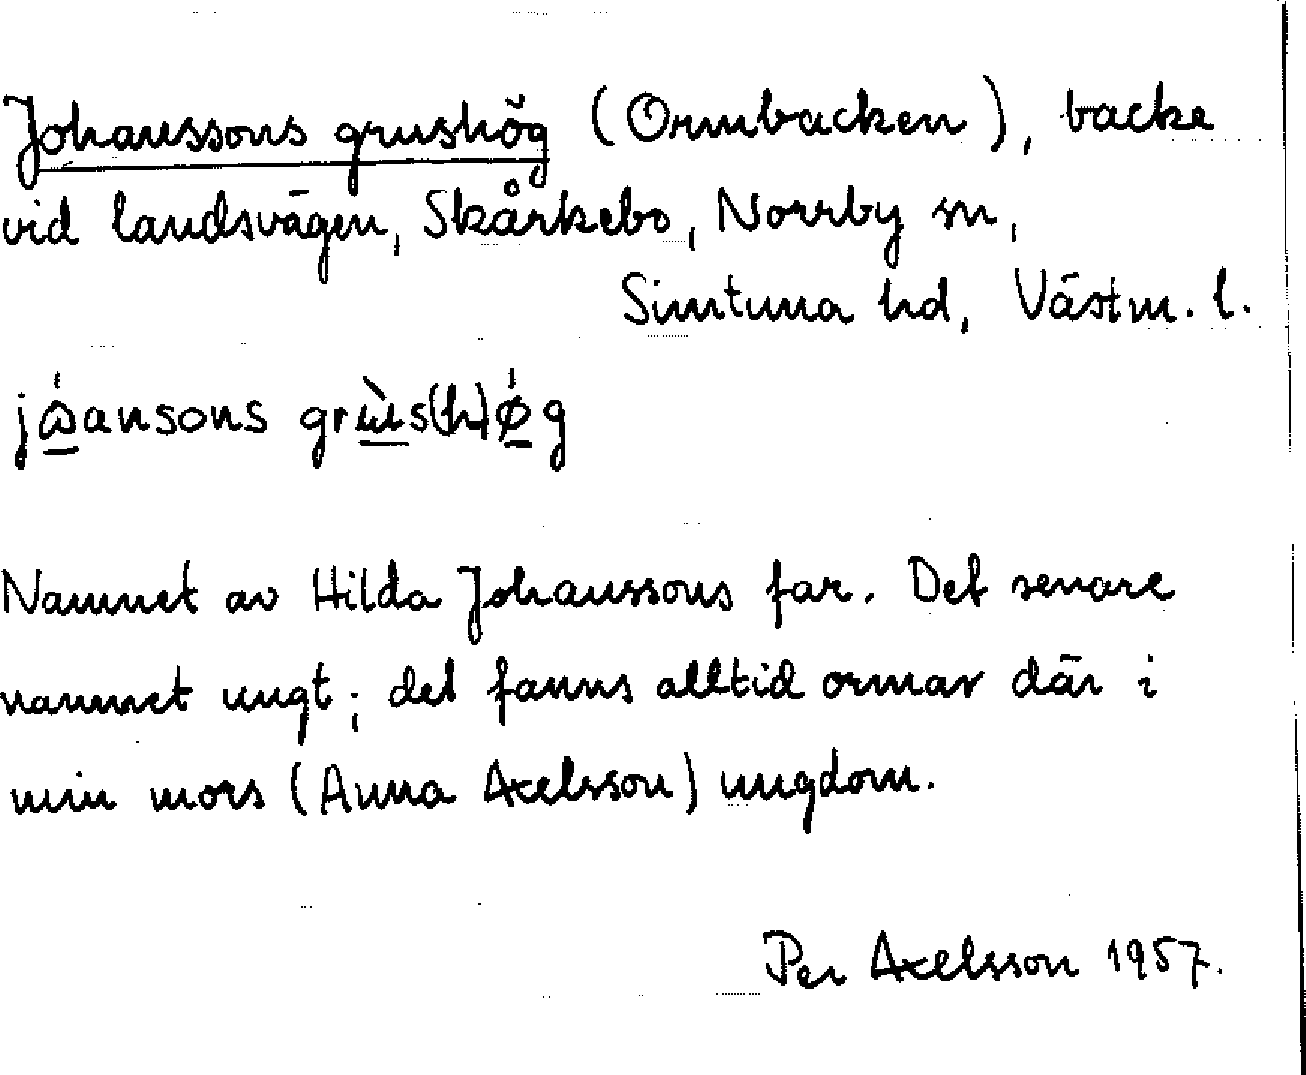 Johanssons grushög (Ormbacken), backe
vid landsvägen, Skårkebo, Norrby sn,
Simtuna hd, Västm. l.
jɷ́ansons grɯ̀s(h)ǿg
Namnet av Hilda Johanssons far. Det senare
namnet ungt; det fanns alltid ormar där i
min mors (Anna Axelsson) ungdom.
Per Axelsson 1957.